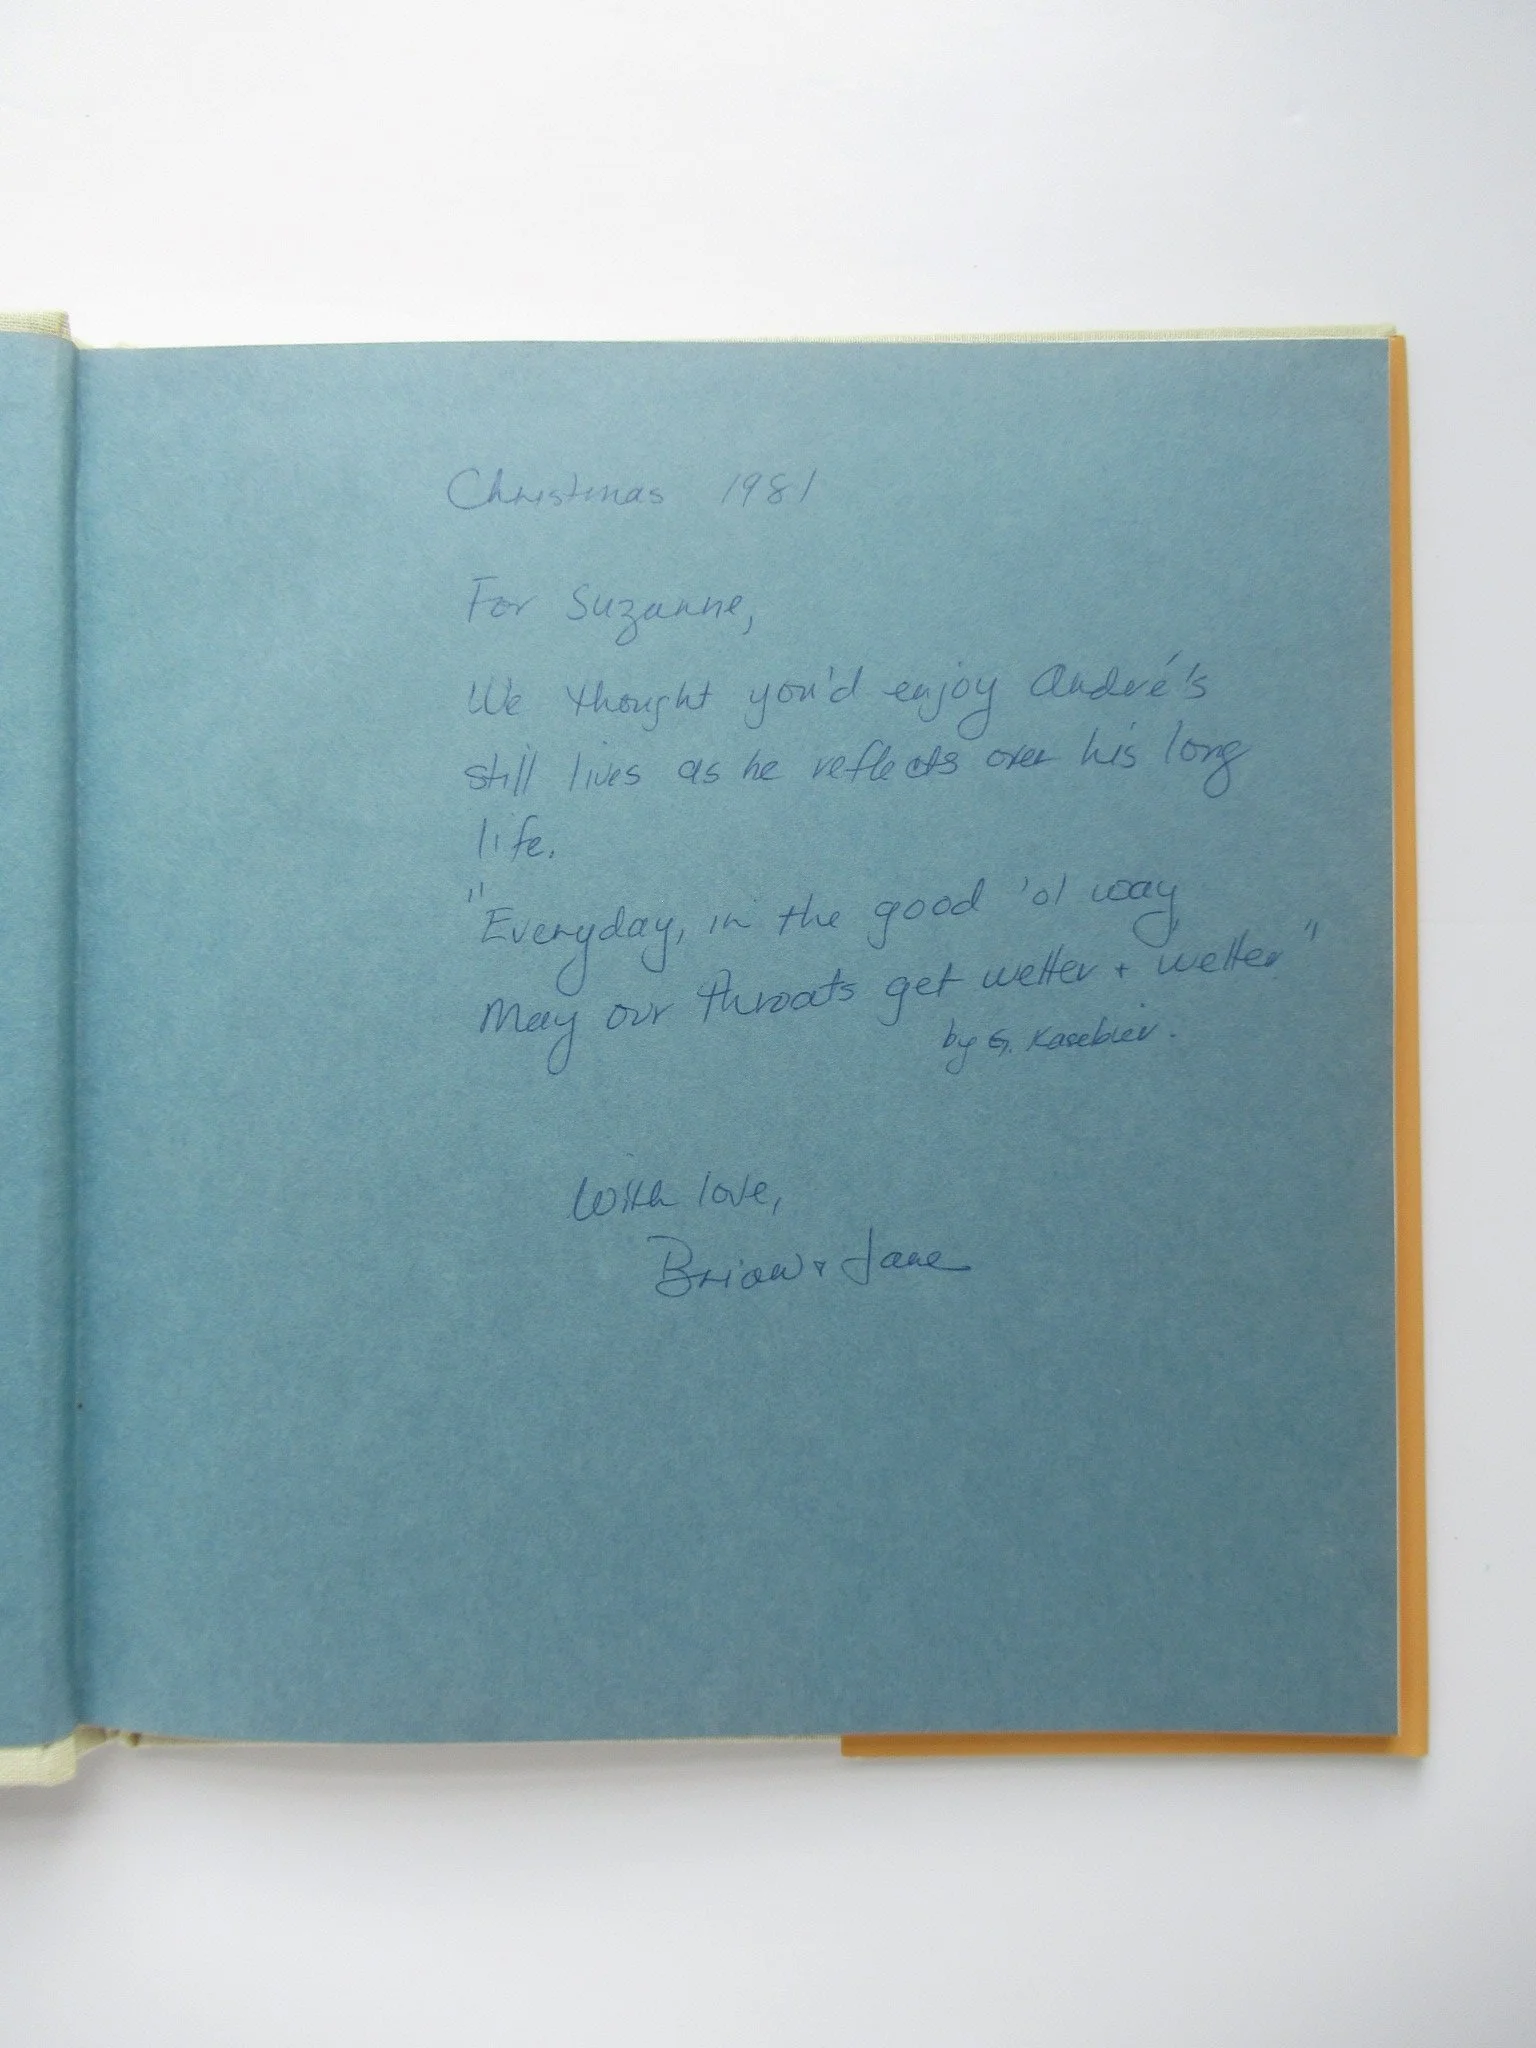 Christmas 1981
For Suzanne,
We thought you'd enjoy André's
still lives as he reflects over his long
life.
"Everyday, in the good 'ol way
May our throats get wetter + wetter"
by G. Kasebier.
With love,
Brian + Jane